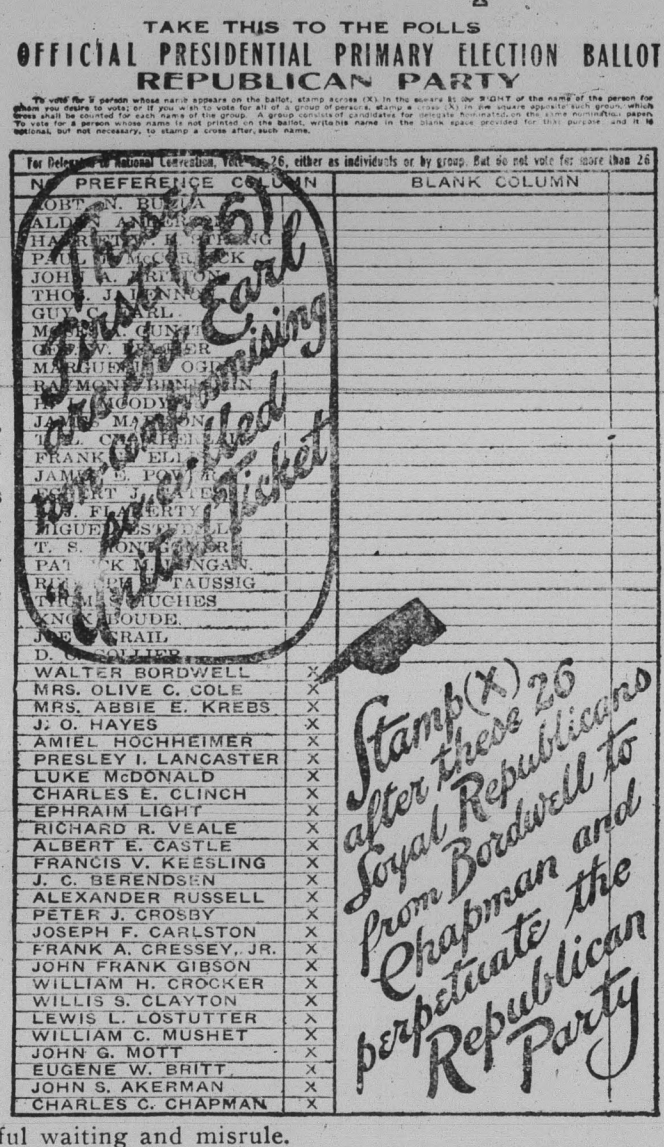 TAKE THIS TO THE POLLS
OFFICIAL PRESIDENTIAL PRIMARY ELECTION BALLOT
REPUBLICAN PARTY
To vote for a person whose name appears on the ballot, stamp across (X) in the square at the RIGHT of the name of the person for
whom you desire to vote; or if you wish to vote for all of a group of persons, stamp a cross (X) in the square opposite such group, which
cross shall be counted for each name of the group. A group consists of candidates for delegate nominated on the same nomination paper.
To vote for a person whose name is not printed on the ballot, write his name in the blank space provided for that purpose and it is
optional, but not necessary, to stamp a cross after such name.
For Delegates to National Convention, Vote for 26, either as individuals or by group. But do not vote for more than 26
NO PREFERENCE COLUMN
BLANK COLUMN
ROBT. N.
PAUL
JOHN A. BRITTON
THOS. J. LENNON
GUY C. EARL
RAYMOND BENJAMIN
MOODY
FRANK
JAMES E. POWER
FLAHERTY
MIGUEL ESTUDILLO
T. S. MONTGOMERY
PATRICK
RUDOLPH TAUSSIG
THOMAS HUGHES
KNOX BOUDE
JOE CRAIL
D. C. COLLIER
These
First (26)
are the Earl
non-compromising
so-called
"United Ticket
WALTER BORDWELL X
MRS. OLIVE C. COLE X
MRS. ABBIE E. KREBS X
J. O. HAYES X
AMIEL HOCHHEIMER X
PRESLEY I. LANCASTER X
LUKE McDONALD X
CHARLES E. CLINCH X
EPHRAIM LIGHT X
RICHARD R. VEALE X
ALBERT E. CASTLE X
FRANCIS V. KEESLING X
J. C. BERENDSEN X
ALEXANDER RUSSELL X
PETER J. CROSBY X
JOSEPH F. CARLSTON X
FRANK A. CRESSEY, JR. X
JOHN FRANK GIBSON X
WILLIAM H. CROCKER X
WILLIS S. CLAYTON X
LEWIS L. LOSTUTTER X
WILLIAM C. MUSHET X
JOHN G. MOTT X
EUGENE W. BRITT X
JOHN S. AKERMAN X
CHARLES C. CHAPMAN X
Stamp (X)
after these 26
Loyal Republicans
from Bordwell to
Chapman and
perpetuate the
Republican
Party
ful waiting and misrule.